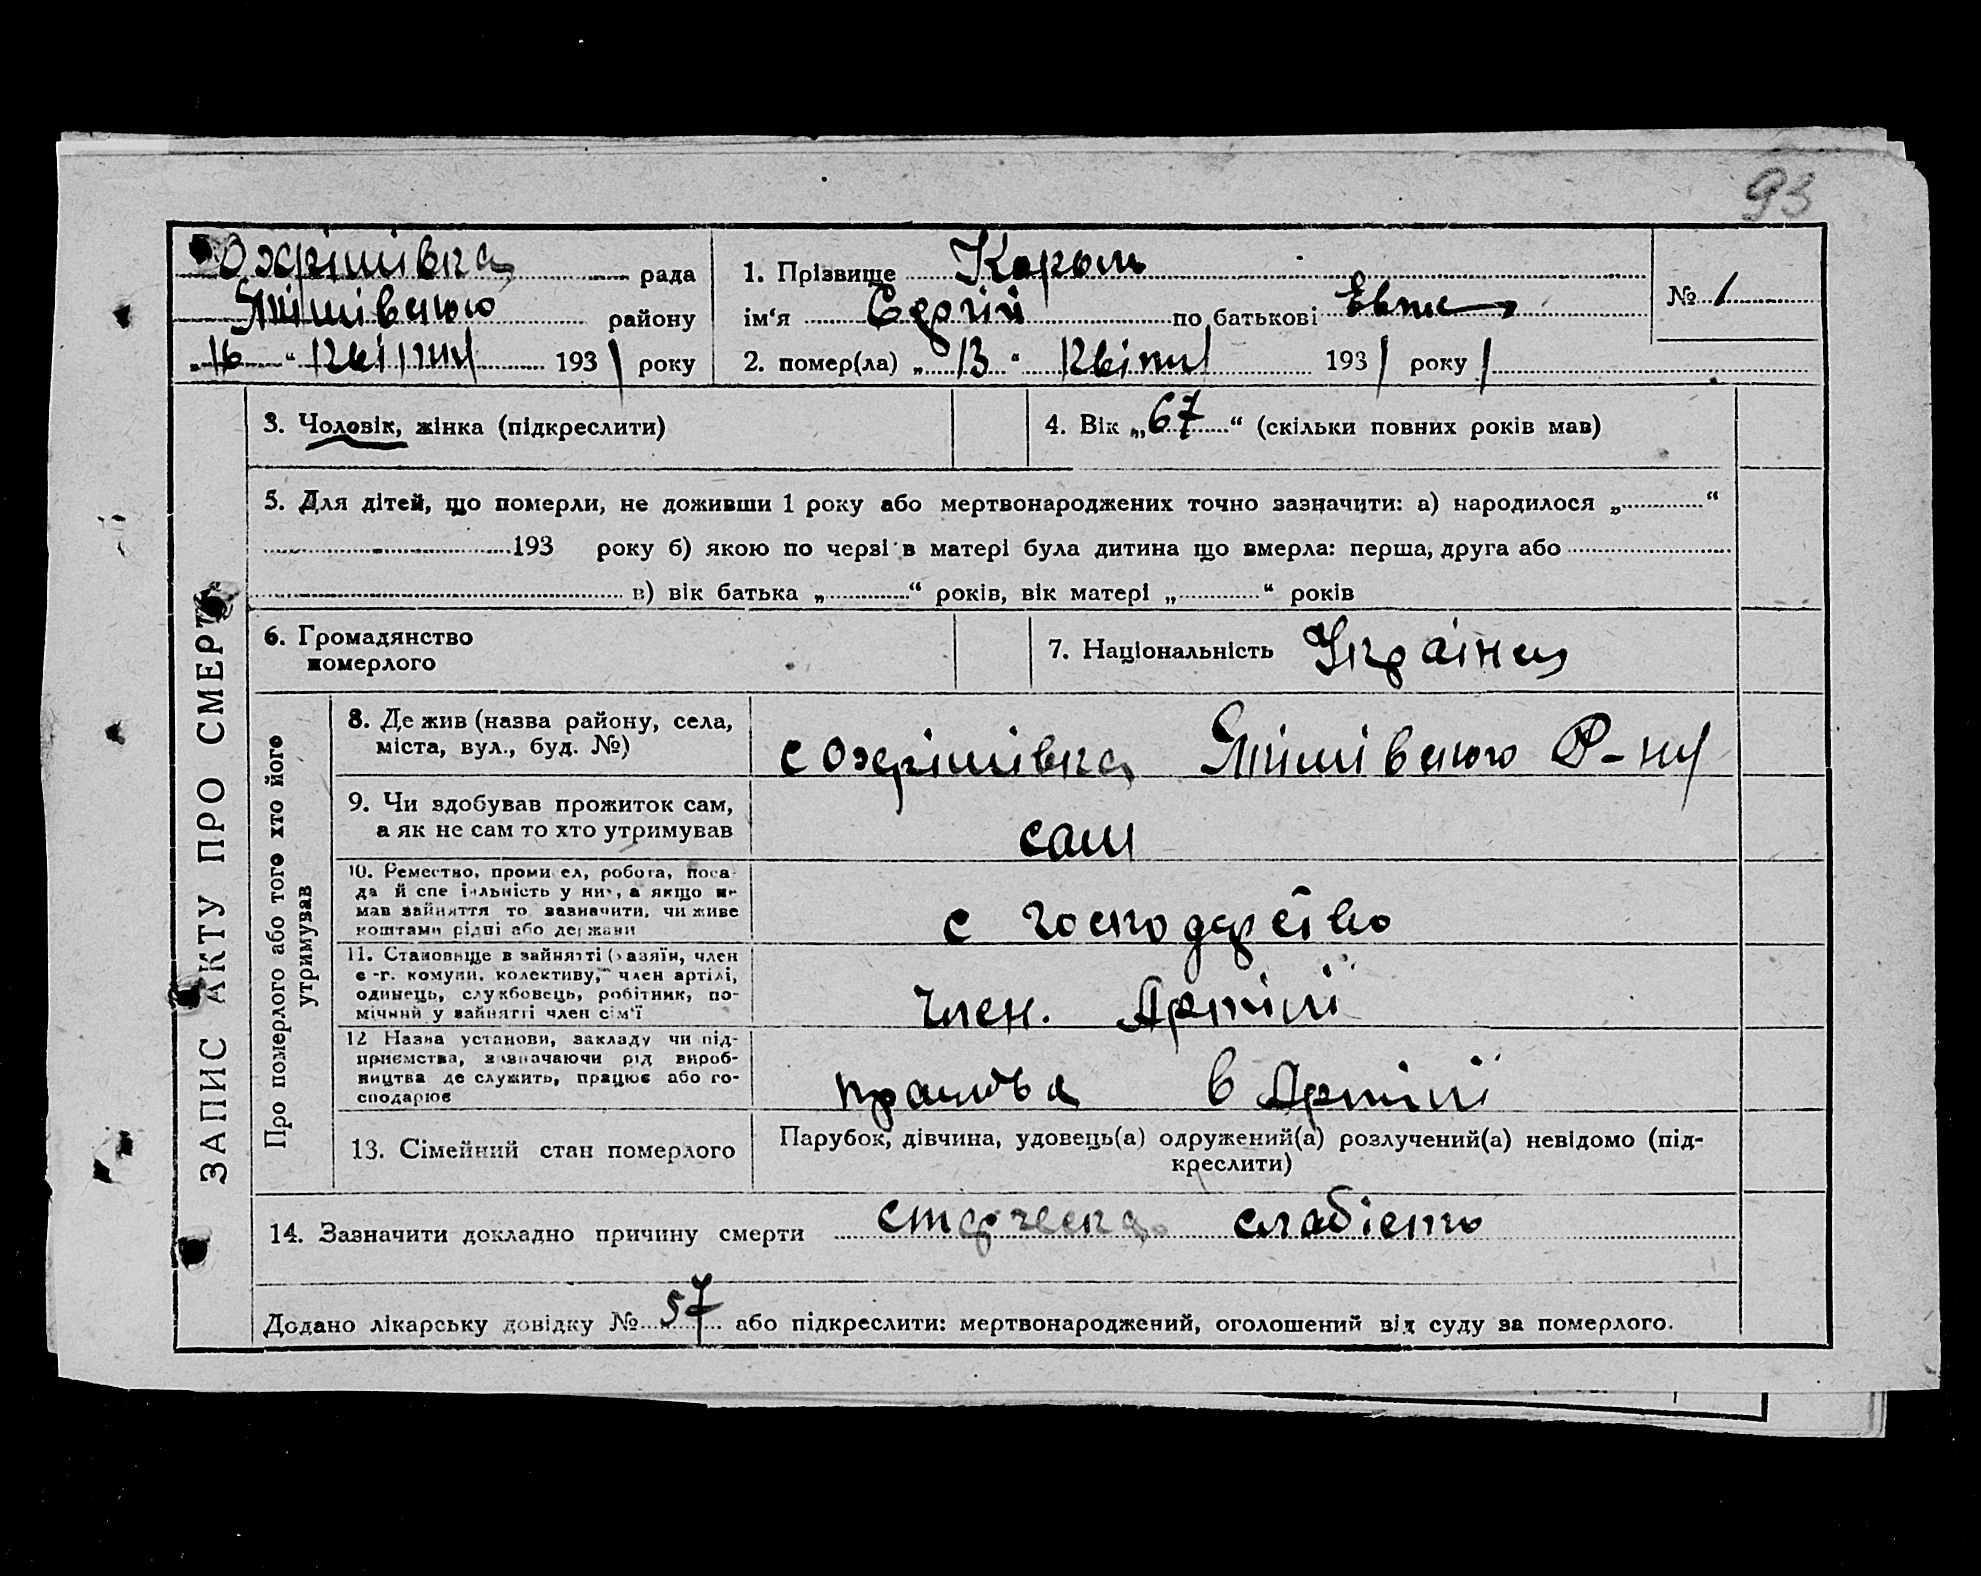 93
Охрімівка рада
Якімівского району
„16“ Квітня 1931 року
1. Прізвище Король
ім'я Сергій по батькові
№ 1
2. помер(ла) „13“ Квітня 1931 року
3. Чоловік, жінка (підкреслити)
4. Вік „67“ (скільки повних років мав)
5. Для дітей, що померли, не доживши 1 року або мертвонароджених точно зазначити: а) народилося „ “
193 року б) якою по черзі в матері була дитина що вмерла: перша, друга або
в) вік батька „ “ років, вік матері „ “ років
6. Громадянство
померлого
7. Національність Українец
ЗАПИС АКТУ ПРО СМЕРТЬ
Про померлого або того хто його
утримував
8. Де жив (назва району, села,
міста, вул., буд. №)
с Охрімівка Якімівского Р-ну
9. Чи здобував прожиток сам,
а як не сам то хто утримував
сам
10. Ремество, промисел, робота, поса-
да й спеціяльність у ній, а якщо не
мав зайняття то зазначити, чи живе
коштами рідні або держави
с господарство
11. Становище в зайнятті (хазяїн, член
с.-г. комуни, колективу, член артілі,
одинець, службовець, робітник, по-
мічний у зайнятті член сім'ї
член. Артілі
12 Назва установи, закладу чи під-
приємства, зазначаючи рід вироб-
ництва де служить, працює або го-
сподарює
в Артілі
13. Сімейний стан померлого
Парубок, дівчина, удовець(а) одружений(а) розлучений(а) невідомо (під-
креслити)
14. Зазначити докладно причину смерти старческа слабість
Додано лікарську довідку № 57 або підкреслити: мертвонароджений, оголошений від суду за померлого.